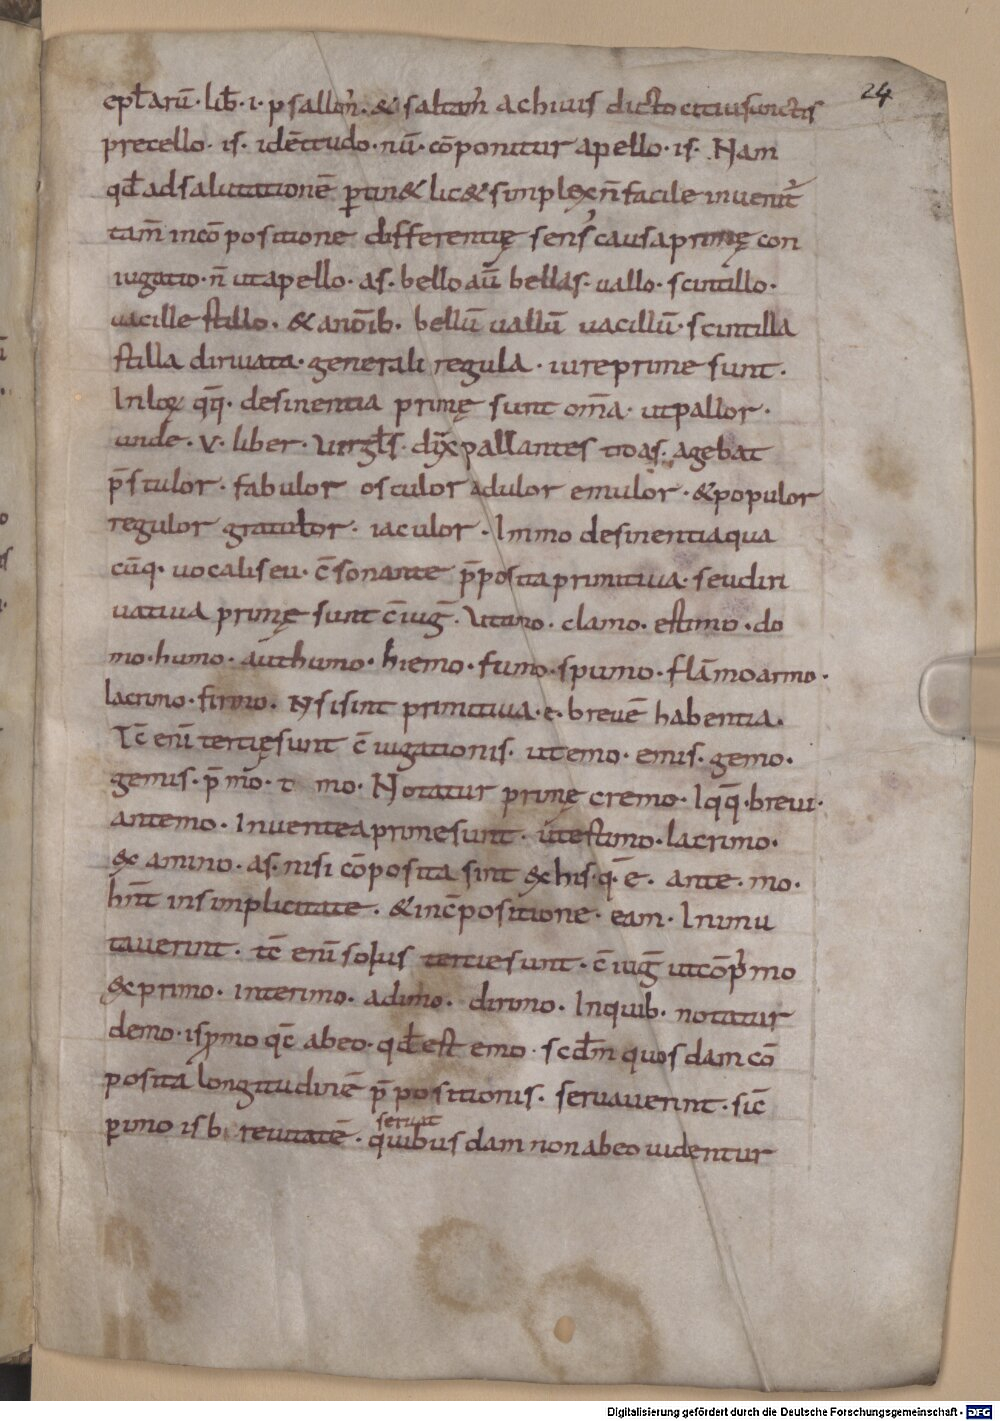 24
epłarū · lib̄ · i · psallim̄ · & saltam̄ achiuis dicto citius unctis
precello · is · idē studo · nū · cōponitur apello · is · Nam
qđ ad salutationē ꝑtin& lic& simplex n̄ facile inuenit̄
tam̄ incōpositione differentię sens᾽ causa primę con
iugatio · n̄ ut apello · as · bello aū bellas · uallo · scintillo ·
uacille stillo · & a nōib · bellū uallū uacillū · scintilla
stilla diriuata · generali regula · iure prime sunt ·
In lox qq̄ · desinentia primę sunt om̄a · ut pallor ·
unde · v · liber · Virgłs · dix̄ pallantes troas · agebat
p̄stulor · fabulor osculor adulor emulor · & populor
regulor gratulor · iaculor · In mo desinentia qua
cūq · uocali seu · c̄sonante p̄posita primitiua · seu diri
uatiua primę sunt c̄iuḡ · Vt amo · clamo · estimo · do
mo · humo · aūt humo · hiemo · fumo · spumo · flām̄o armo ·
lacrimo · firmo · N si sint primitiua · e · breuē habentia ·
Tc̄ eni tertię sunt c̄iugationis · ut emo · emis · gemo ·
gemis · p̄mo · t mo · Notatur primę cremo · Iqq̄ · breui ·
ante mo · Inuentea prime sunt · ūt estimo · lacrimo ·
& amino · as · nisi cōposita sint ex his · q̄ · ē · ante · mo ·
hn̄t in simplicitate · & in c̄positione · eam · In i mu
tauerint · tc̄ eni solius tertie sunt · c̄iuḡ ut cōp̄mo
exprimo · interimo · adimo · dirimo · In quib · notatur
demo · is p̄mo qc̄ abeo · qđ est emo · scđm quosdam cō
posita longitudinē p̄positionis · seruauerint · sic̄
ꝑimo is breuitatē · quibusdam non abeo uidentur
seruat
Digitalisierung gefördert durch die Deutsche Forschungsgemeinschaft · DFG